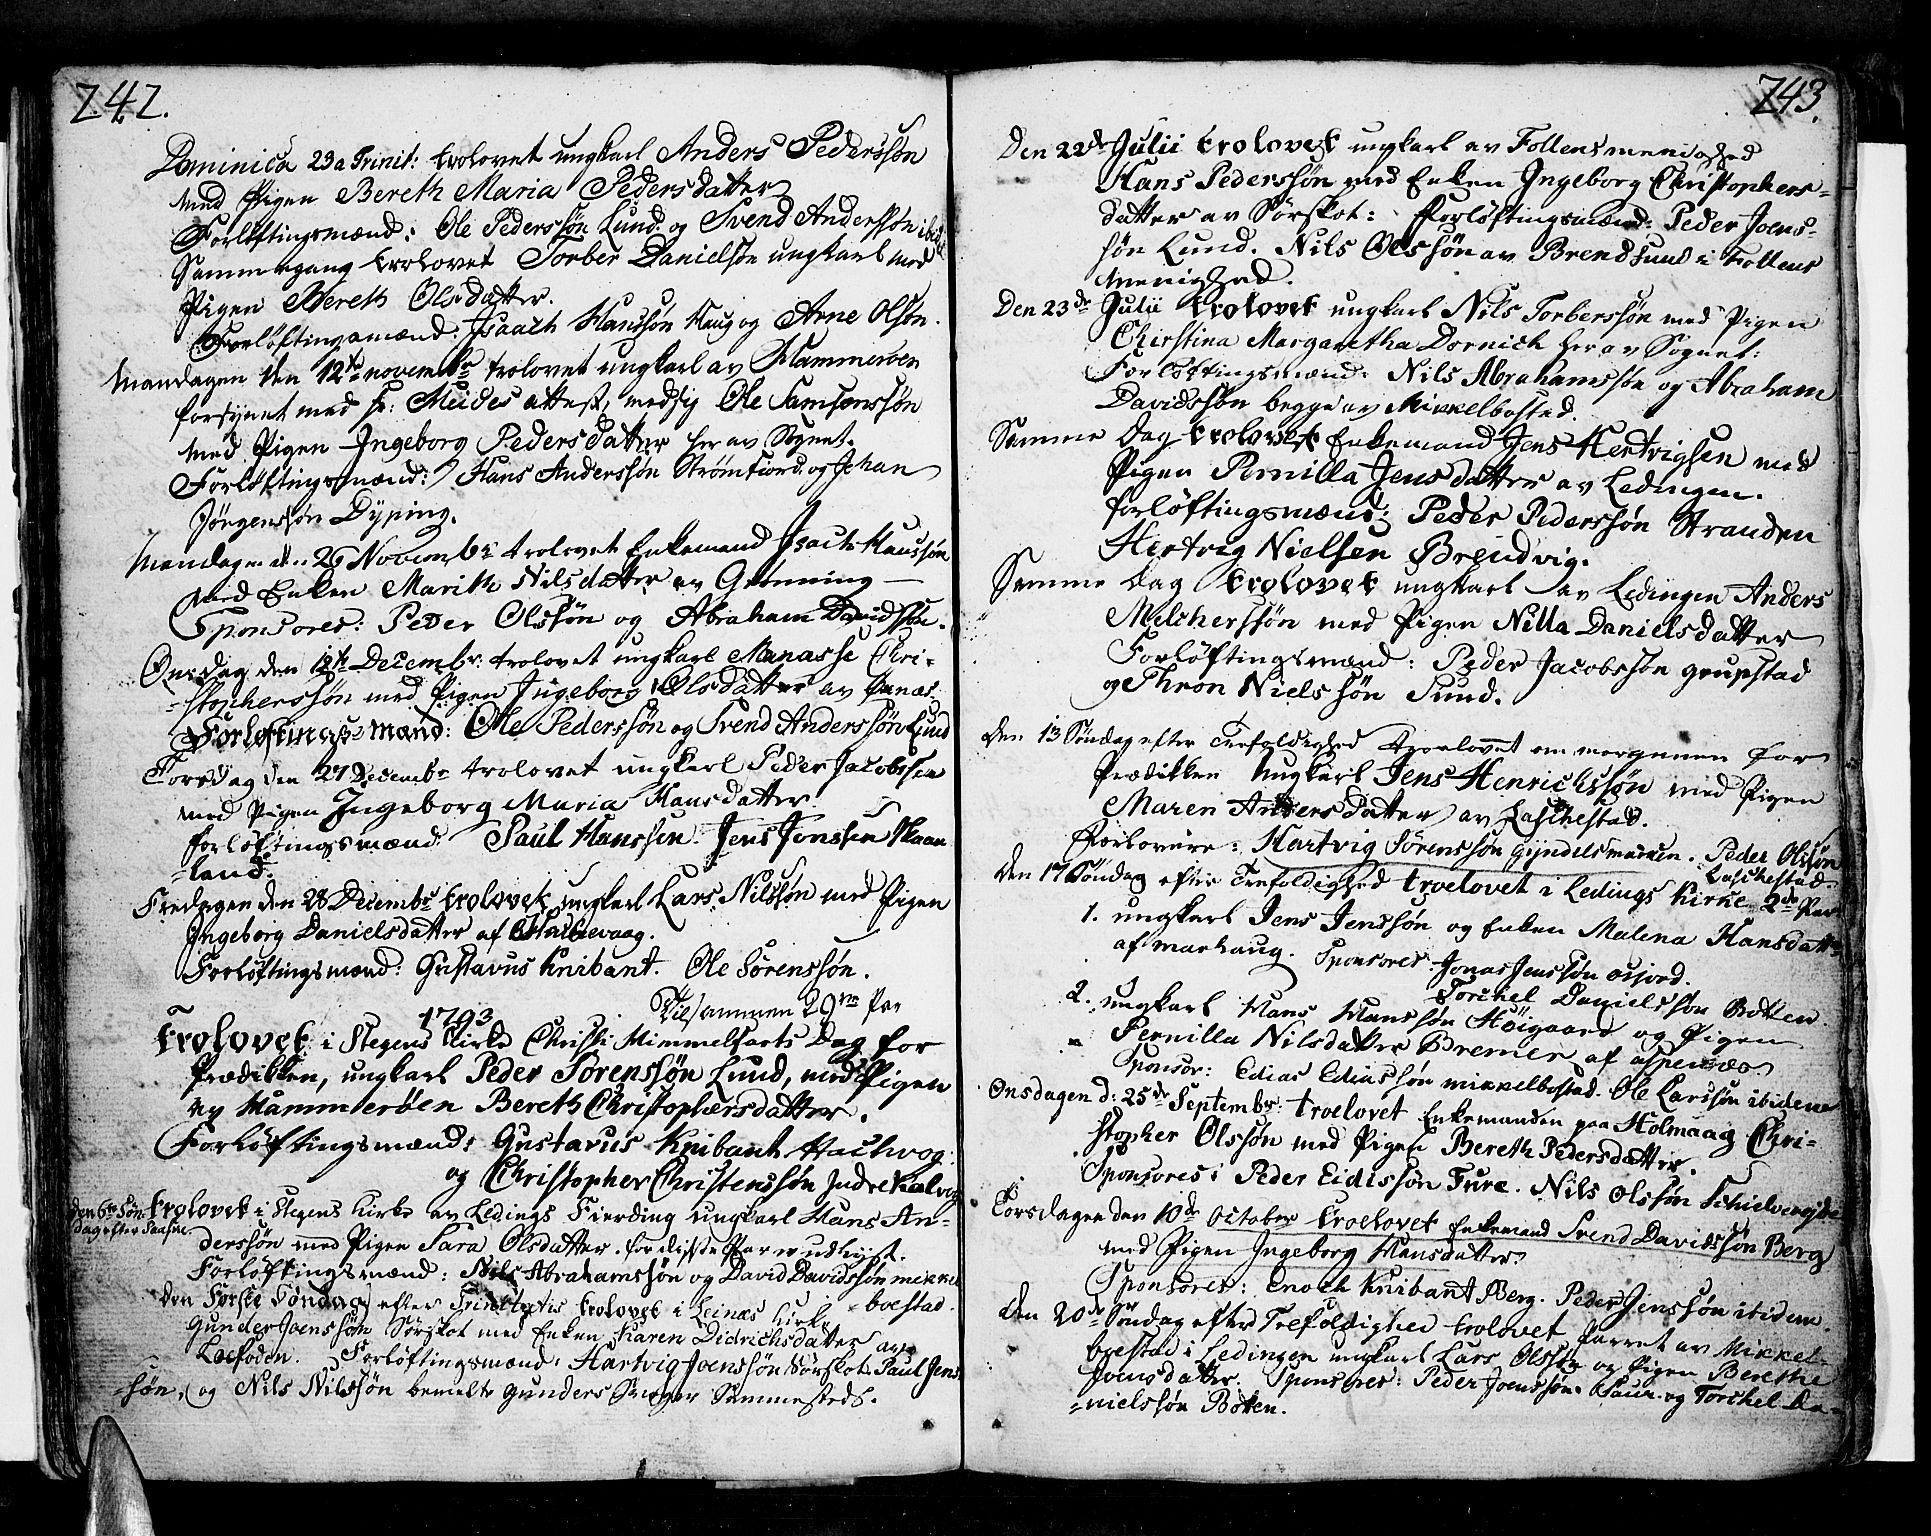 242.
Dominica 23 a Trinit: trolovet ungkarl Anders Pederssøn
med Pigen Bereth Maria Pedersdatter
Forløftingsmænd: Ole Pederssøn Lund og Svend Anderssøn ibid
Samme gang trolovet Torber Danielsøn ungkarl med
Pigen Bereth Olsdatter.
Forløftingsmænd: Isaach Hanssøn Haug og Arne Olsøn.
Mandagen den 12te novembr trolovet ungkarl av Hammerøen
forsynet med Hr: Meides attest, med sig Ole Samsonssøn
med Pigen Ingeborg Pedersdatter her av Sognet.
Forløftingsmænd: Hans Anderssøn Strømfiord og Johan
Jørgenssøn Dyping.
Mandagen d: 26 Novembr trolovet Enkemand Isach Hanssøn
med Enken Marith Nilsdatter av Grønning
Sponsores: Peder Olssøn og Abraham Davidssøn.
Onsdag den 12te Decembr: trolovet ungkarl Manasse Chri-
-stopherssøn med Pigen Ingeborg Olsdatter av Øsnæs
Forløftingsmænd: Ole Pederssøn og Svend Anderssøn Lund
Torsdag den 27 Decembr trolovet ungkarl Peder Jacobssen
med Pigen Ingeborg Maria Hansdatter
forløftingsmænd Paul Hanssen. Jens Jonssen Skaan
-land.
Fredagen den 28 Decembr trolovet ungkarl Lars Nilssøn med Pigen
Ingeborg Danielsdatter af
Forløftingsmænd: Gustavus Knibant. Ole Sørenssøn.
Tilsammen 29 Par
1793
Trolovet i Stegens Kirke Christi Himmelfarts Dag for
Prædikken, ungkarl Peder Sørenssøn Lund, med Pigen
av Hammerøen Bereth Christophersdatter.
Forløftingsmænd: Gustavus Knibant Hachvog
og Christopher Christenssøn Indrekalvog
den 6te Søn- trolovet i Stegens Kirke av Ledings Fierding ungkarl Hans An-
dag efter Paaske
derssøn med Pigen Sara Olsdatter. for disse Par er udlyst.
Forløftingsmænd: Nils Abrahamssøn og David Davidssøn mikkel
-boestad.
den Første Søndag efter Trinitatis trolovet i Leines Kirke
Gunder Joenssøn Sørskot med Enken Karen Didrichsdatter av
Loefoden. Forløftingsmænd: Hartvig Joenssøn Sørskot. Paul Jens
-søn, og Nils Nilssøn bemelte gunders Svoger Sammesteds.
243.
Den 22de Julii trolovet ungkarl av Foldens menighed
Hans Pederssøn med Enken Ingeborg Christophers-
datter av Sørskot: Forløftingsmænd: Peder Joens-
søn Lund. Nils Olssøn av Brendsund i Foldens
menighed.
Den 23de Julii trolovet ungkarl Nils Torberssøn med Pigen
Christina Margaretha Dornich her av Sognet:
Forløftingsmænd: Nils Abrahamssøn og Abraham
Davidssøn begge av Mikkelbosted.
Samme Dag trolovet Enkemand Jens Hertvigsen med
Pigen Pernilla Jensdatter av Ledingen.
forløftingsmænd: Peder Pederssøn Stranden
Hertvig Nielsen Brendvig.
Samme Dag trolovet ungkarl av Ledingen Anders
Milcherssøn med Pigen Nilla Danielsdatter
Forløftingsmænd: Peder Jacobssøn grupstad
og Thron Nielssøn Sund.
den 13 Søndag efter Trefoldighed troelovet om morgenen for
Prædikken Ungkarl Jens Henrichssøn med Pigen
Maren Andersdatter av Laschestad.
Forlovere: Hartvig Sørenssøn Gyndelsmarken. Peder Olssøn
Laschestad.
den 17 Søndag efter Trefoldighed troelovet i Ledings Kirke 2de Par
1. ungkarl Jens Jenssøn og Enken Malena Hansdatter
af marhaug. Sponsores: Jonas Jenssøn osjord.
Torchel Danielssøn Botten
2. ungkarl Hans Hanssøn Høigaard og Pigen
Pernilla Nilsdatter Bremer af aspenæs
Sponsor: Edias Ediassøn mikkelbostad. Ole Larssøn ibidem
Onsdagen d: 25de Septembr: troelovet Enkemanden paa Holmaag Chri-
stopher Olssøn med Pigen Bereth Pedersdatter.
Sponsores: Peder Eidissøn Fure. Nils Olssøn
Torsdagen den 10de October troelovet Enkemand Svend Davidssøn Berg
med Pigen Ingeborg Hansdatter.
Sponsores: Enoch Knibant Berg. Peder Jenssøn ibidem.
den 20de Søndag efter Trefoldighed trolovet Parret av Mikkel-
boestad i Ledingen ungkarl Lars Olssøn og Pigen Berethe
Joensdatter. Sponsores: Peder Joenssøn og Torchel Da-
-nielssøn Botten.